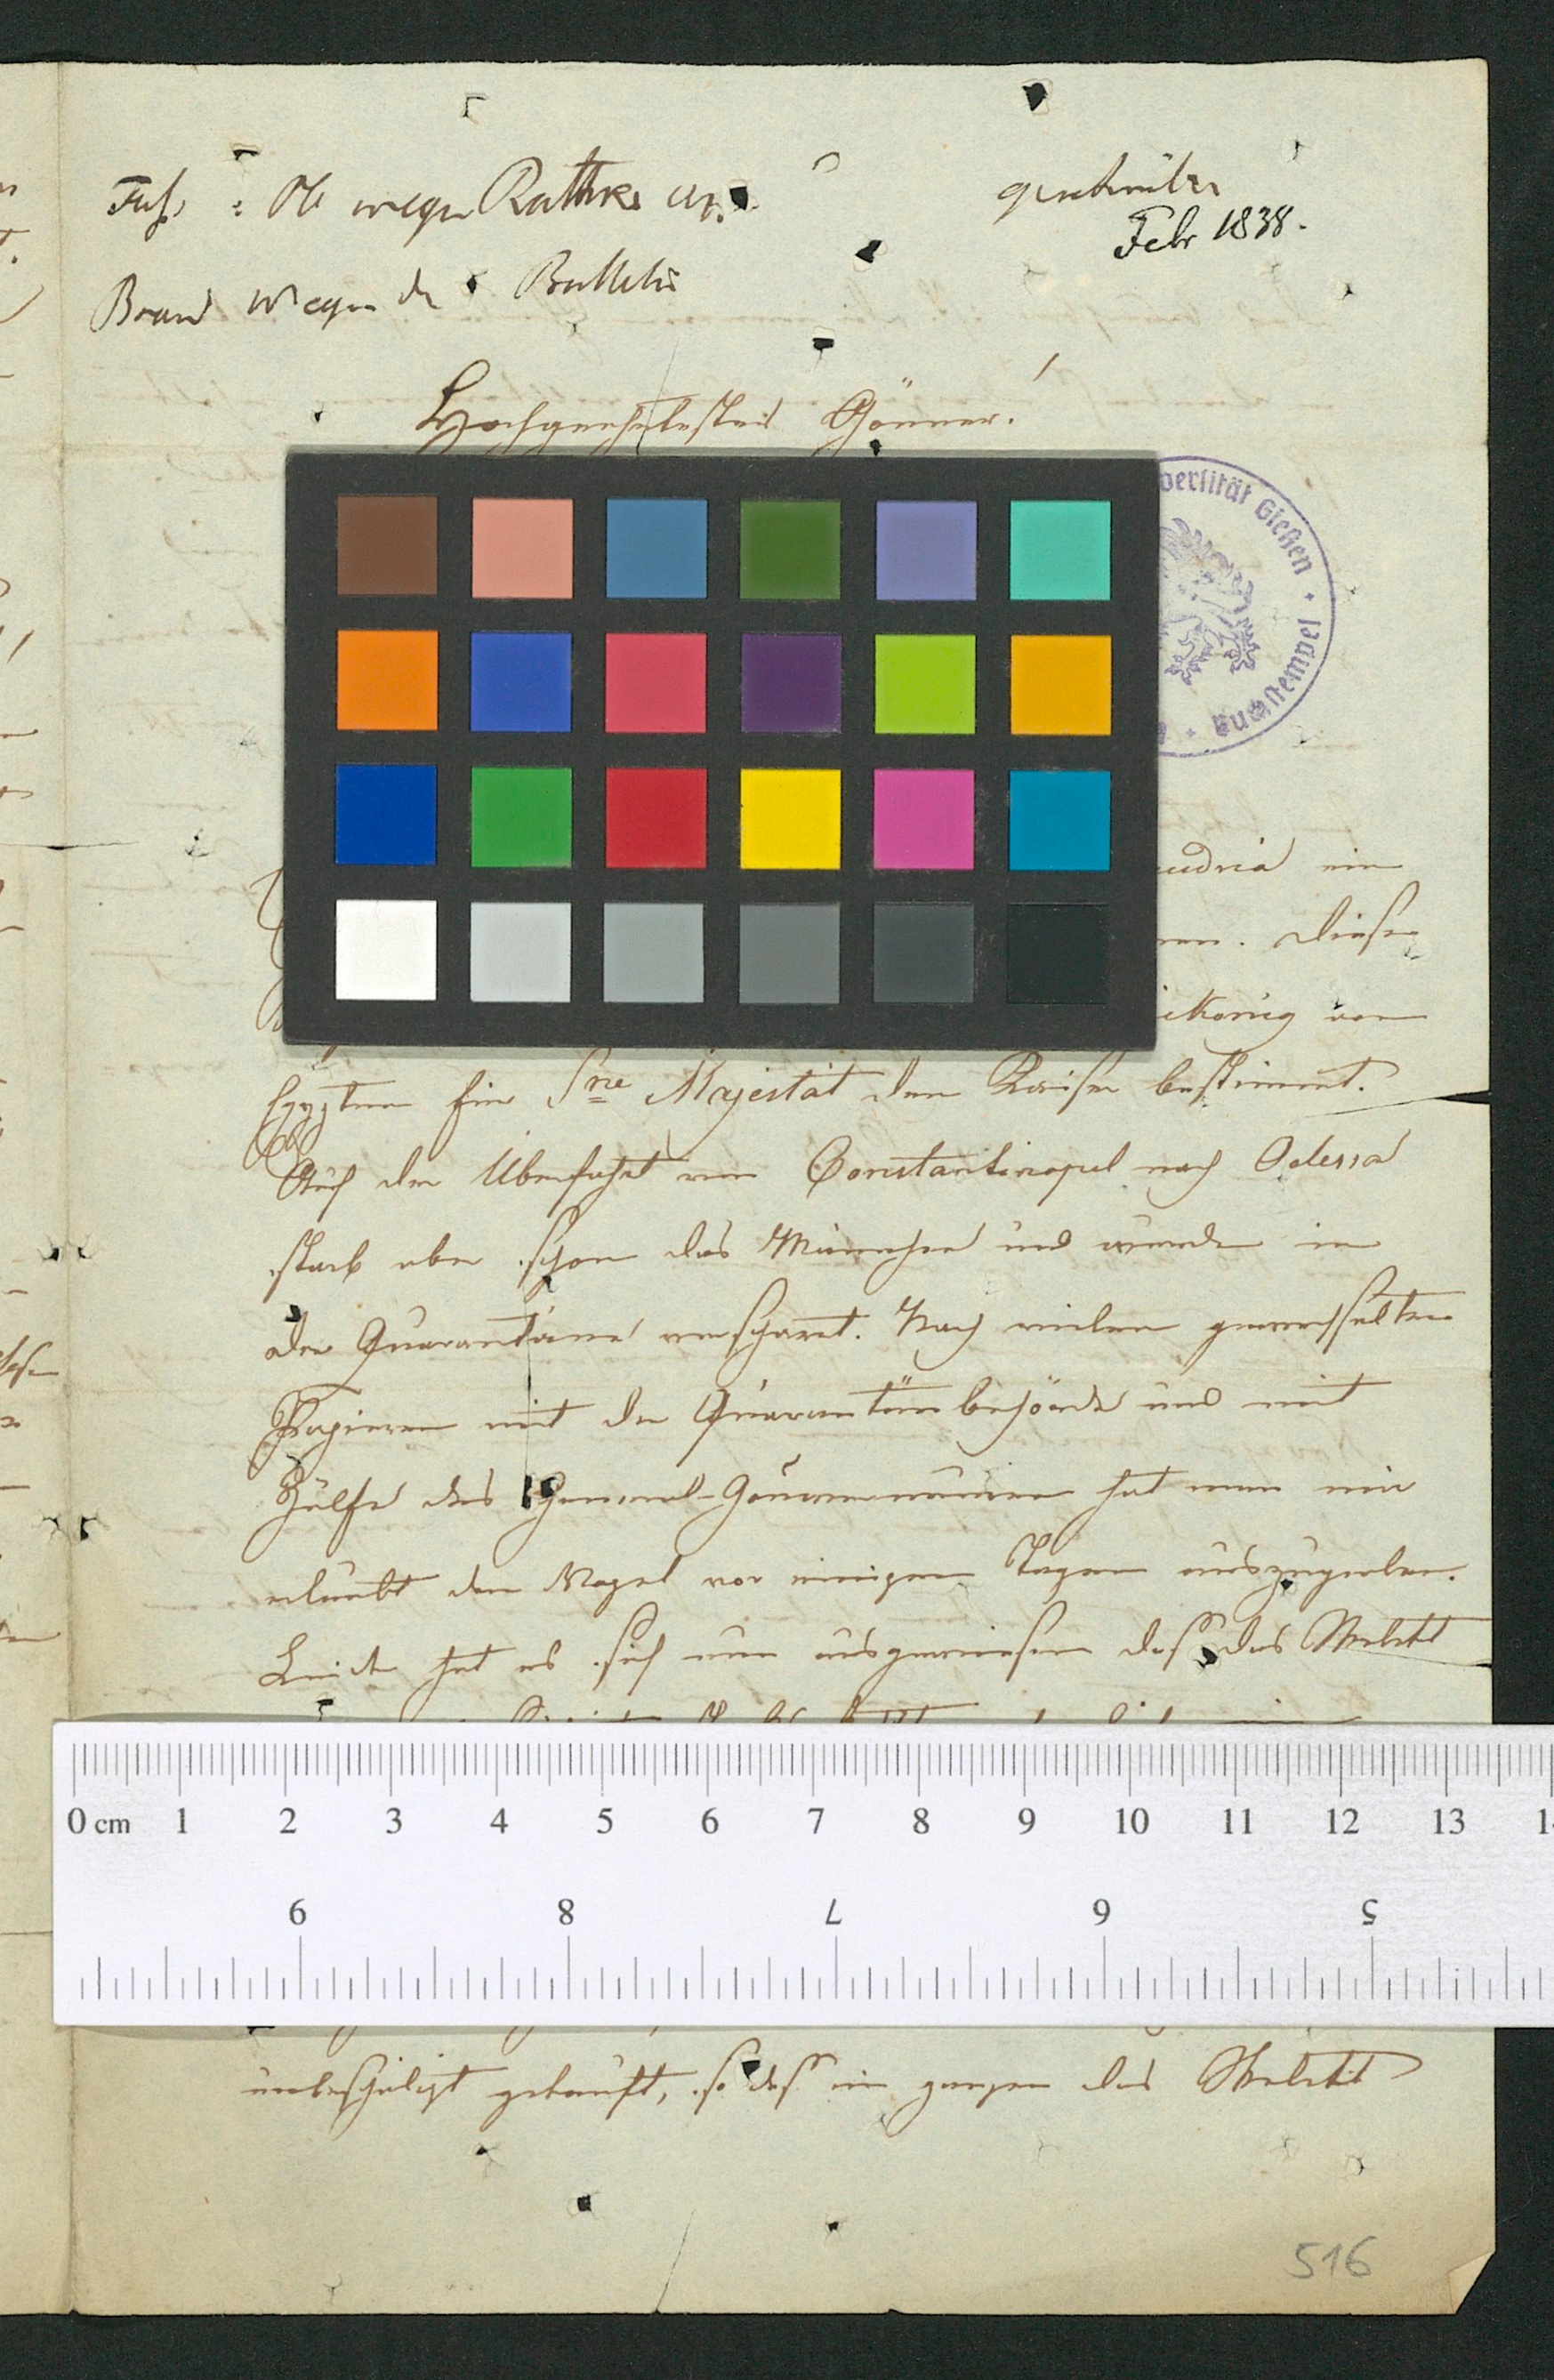 geschrieben
Febr 1838.
Fuss: Ob wegen Rathke
Brand wegen der Bulletin
Hochgeehrtester Gönner!
versität Gießen · Buchstempel ·
andria ein
nen. Diese
ickönig von
Egypten für Sne Majestät den Kaiser bestimmt.
Auf der Überfahrt von Constantinopel nach Odessa
starb aber schon das Männchen und wurde in
der Quarantäne verscharrt. Nach vielen gewechselten
Papieren mit der Quarantänbehörde und mit
Hülfe des General-Gouverneuren hat man mir
erlaubt den Vogel vor einigen Tagen auszugraben.
Leider hat es sich nun ausgewiesen dass das Skelett
0 cm 1 2 3 4 5 6 7 8 9 10 11 12 13 1
9 8 7 6 5
unbeschädigt gekauft, so dass im ganzen das Skelett
516